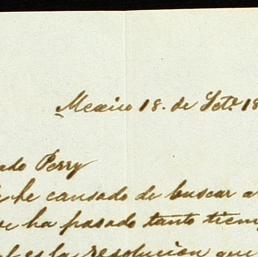 Mexico 18. de Set.e 18
ado Perry
he cansado de buscar a
ve ha pasado tanto tiem
l es la resolucion que